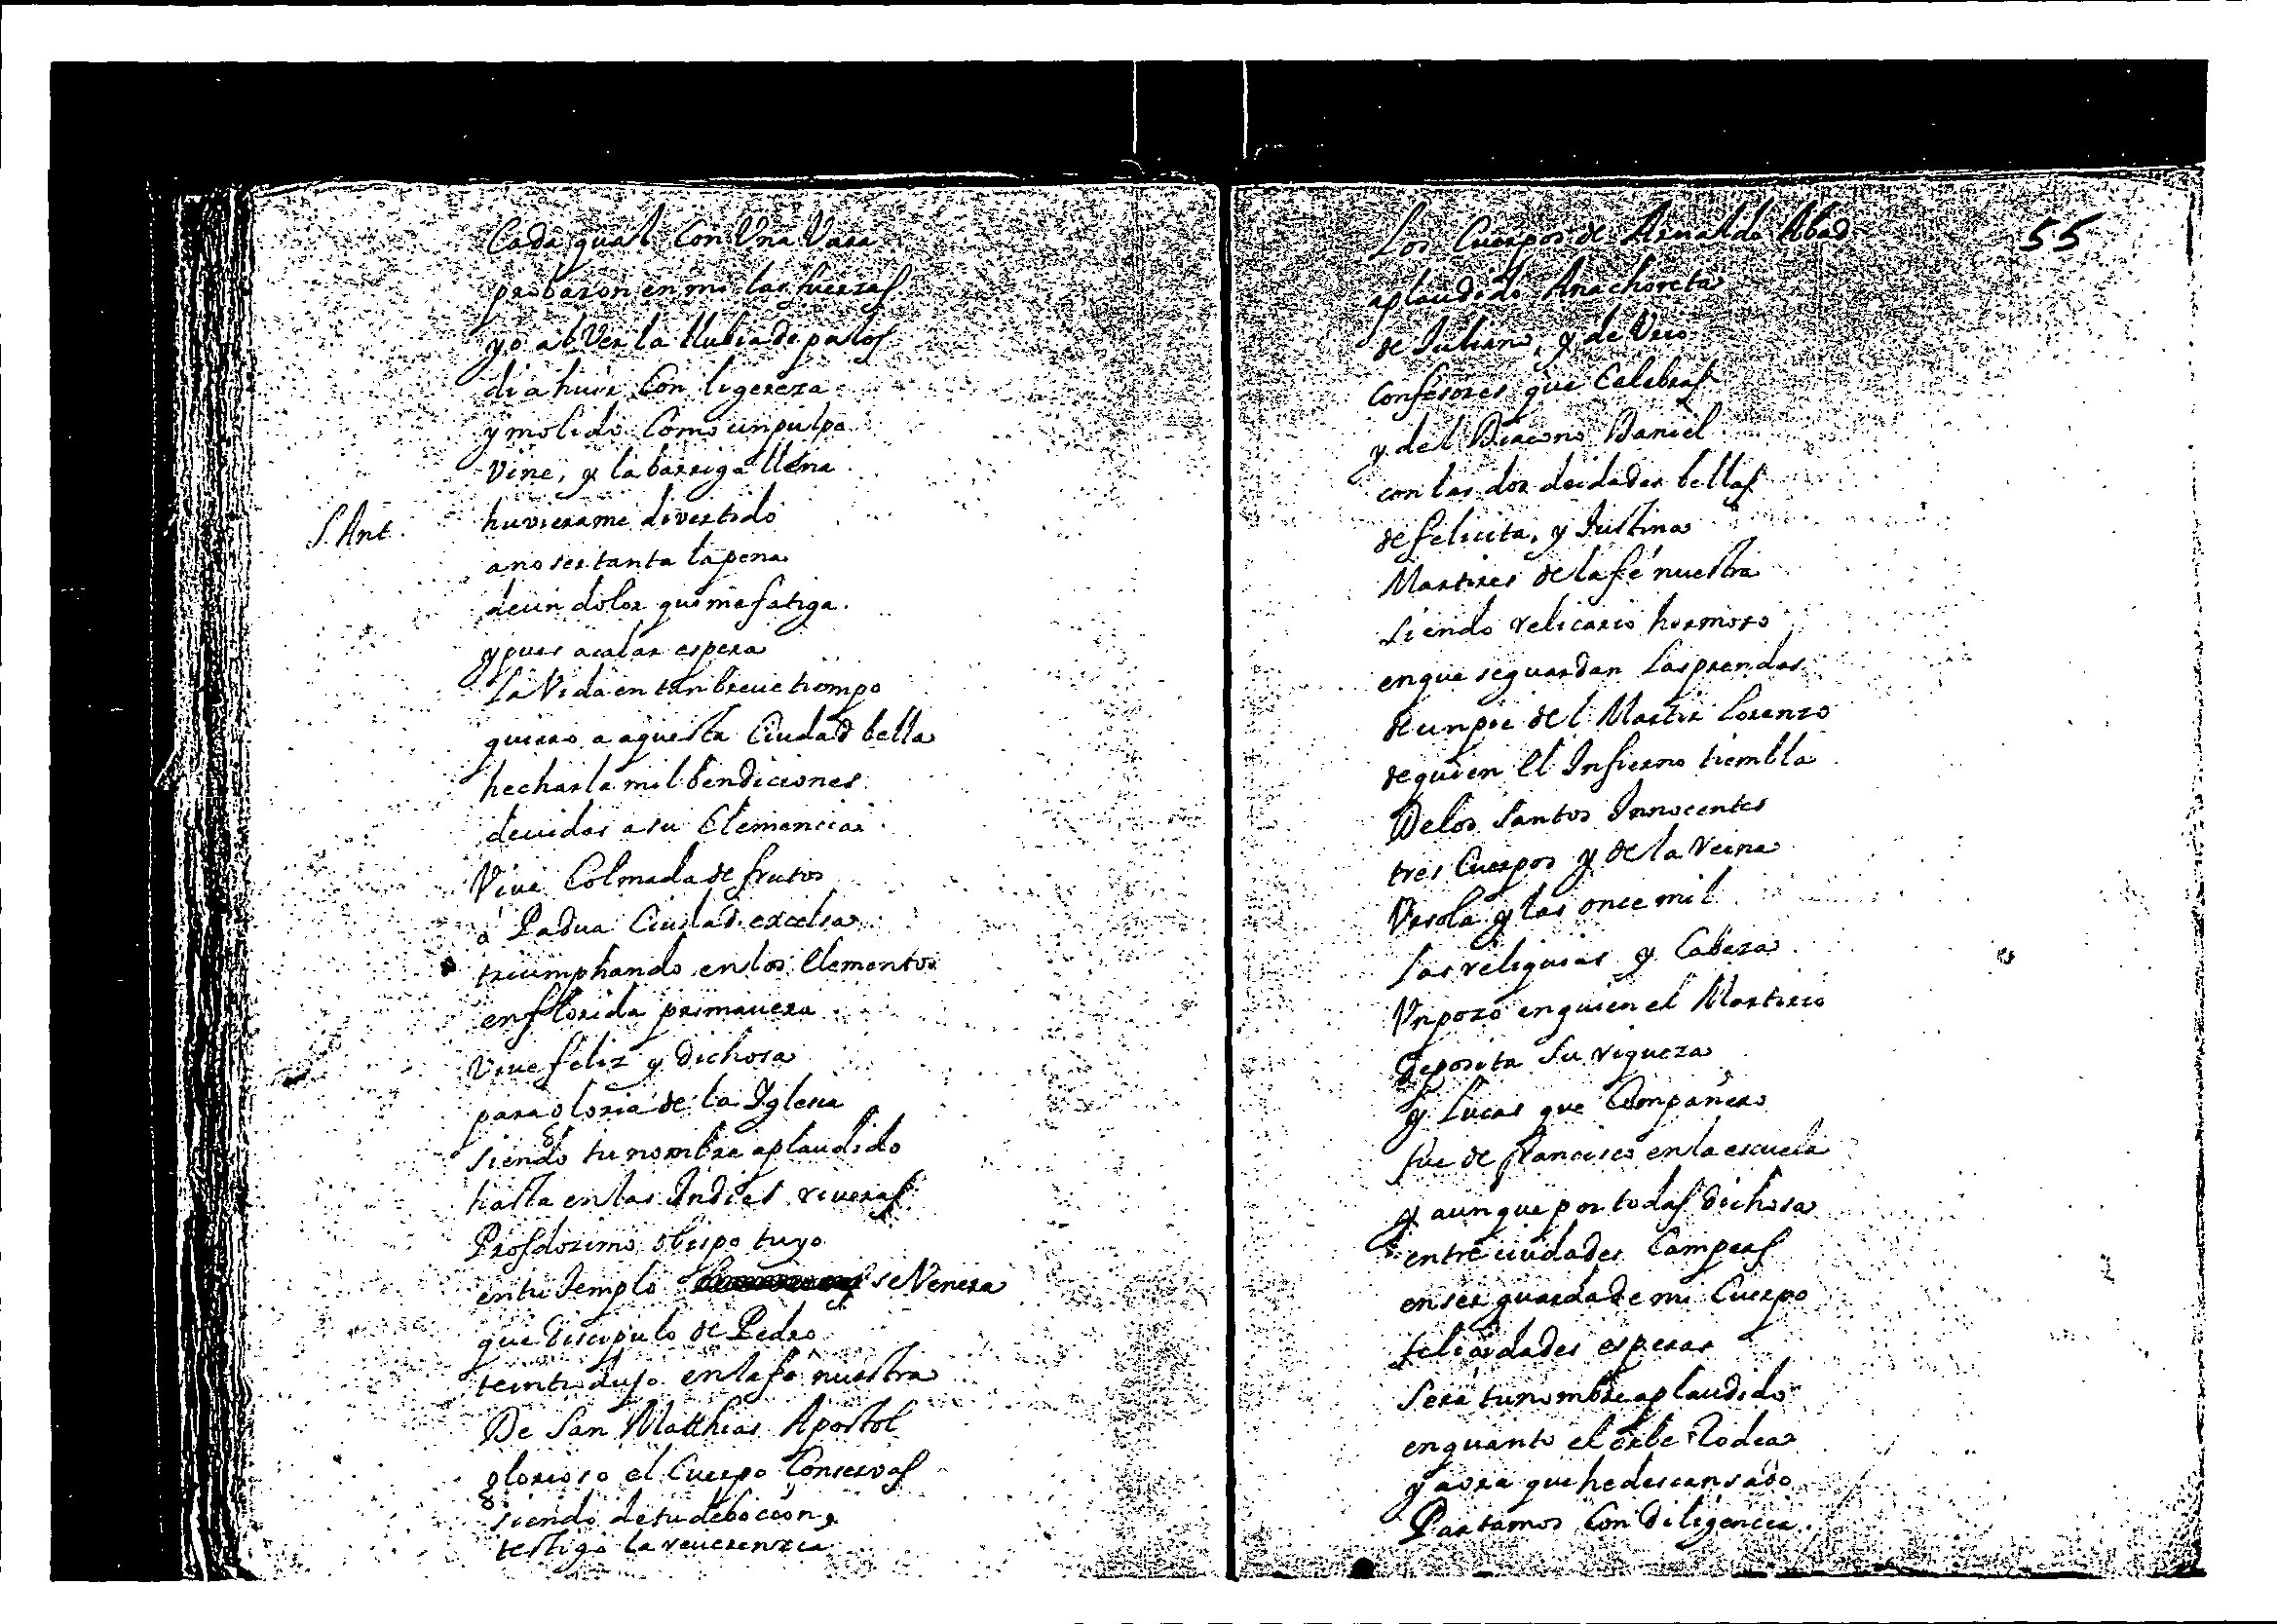 Cada qual Con Vna Vara
probaron en mi las fuerzas
yo al Ver la llubia de palos
di a huir Con ligereza
y molido Como un pulpo
vine, y la barriga llena
S. Ant. huvierame divertido
a no ser tanta la pena
de un dolor que me fatiga.
y pues acabar espera
La Vida en tan breue tiempo
quiero a aquesta Ciudad bella
hecharla mil bendiciones
deuidas a su Clemencia
Viue Colmada de frutos
o Padua Ciudad excelsa
triumphando en los Elementos
en florida primauera
Viue feliz y dichosa
para gloria de la Yglesia
siendo tu nombre aplaudido
hasta en las Indias riueras
Prosdozimo obispo tuyo
en tu templo se Venera
que discipulo de Pedro
te introdujo en la fe nuestra
De San Matthias Apostol
glorioso el Cuerpo Conservas
siendo de tu debocion,
testigo la reuerenzia
Los Cuerpos de Arnaldo Abad 55
aplaudido Anachoreta
de Juliano, y de Vcio
confesores que Celebras
y del Diacono Daniel
con las dos deidades bellas
de felicita, y Justina
Martires de la fe nuestra
siendo relicario hermoso
en que se guardan las prendas
de un pie del Martir Lorenzo
de quien el Infierno tiembla
De los Santos Innocentes
tres Cuerpos y de la reina
Vrsola y las once mil
las reliquias y Cabeza
Vn pozo en quien el Martirio
deposita su riqueza
y Lucas que Compañero
fue de francisco en la escuela
y aunque por todas dichosa
entre ciudades Campeas
en ser guarda de mi Cuerpo
felicidades esperas
Será tu nombre aplaudido
en quanto el orbe Rodea
y aora que he descansado
Partamos Con diligencia.